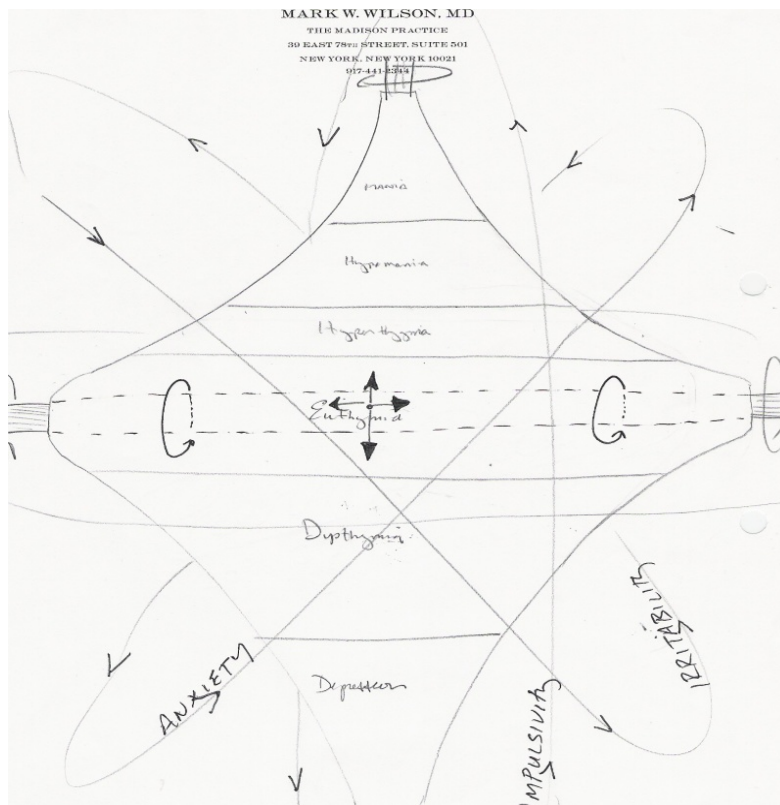 MARK W. WILSON, MD
THE MADISON PRACTICE
39 EAST 78TH STREET, SUITE 501
NEW YORK, NEW YORK 10021
917-441-2344
Mania
Hypomania
Hyperthymia
Euthymia
Dysthymia
Depression
ANXIETY
IMPULSIVITY
IRRITABILITY